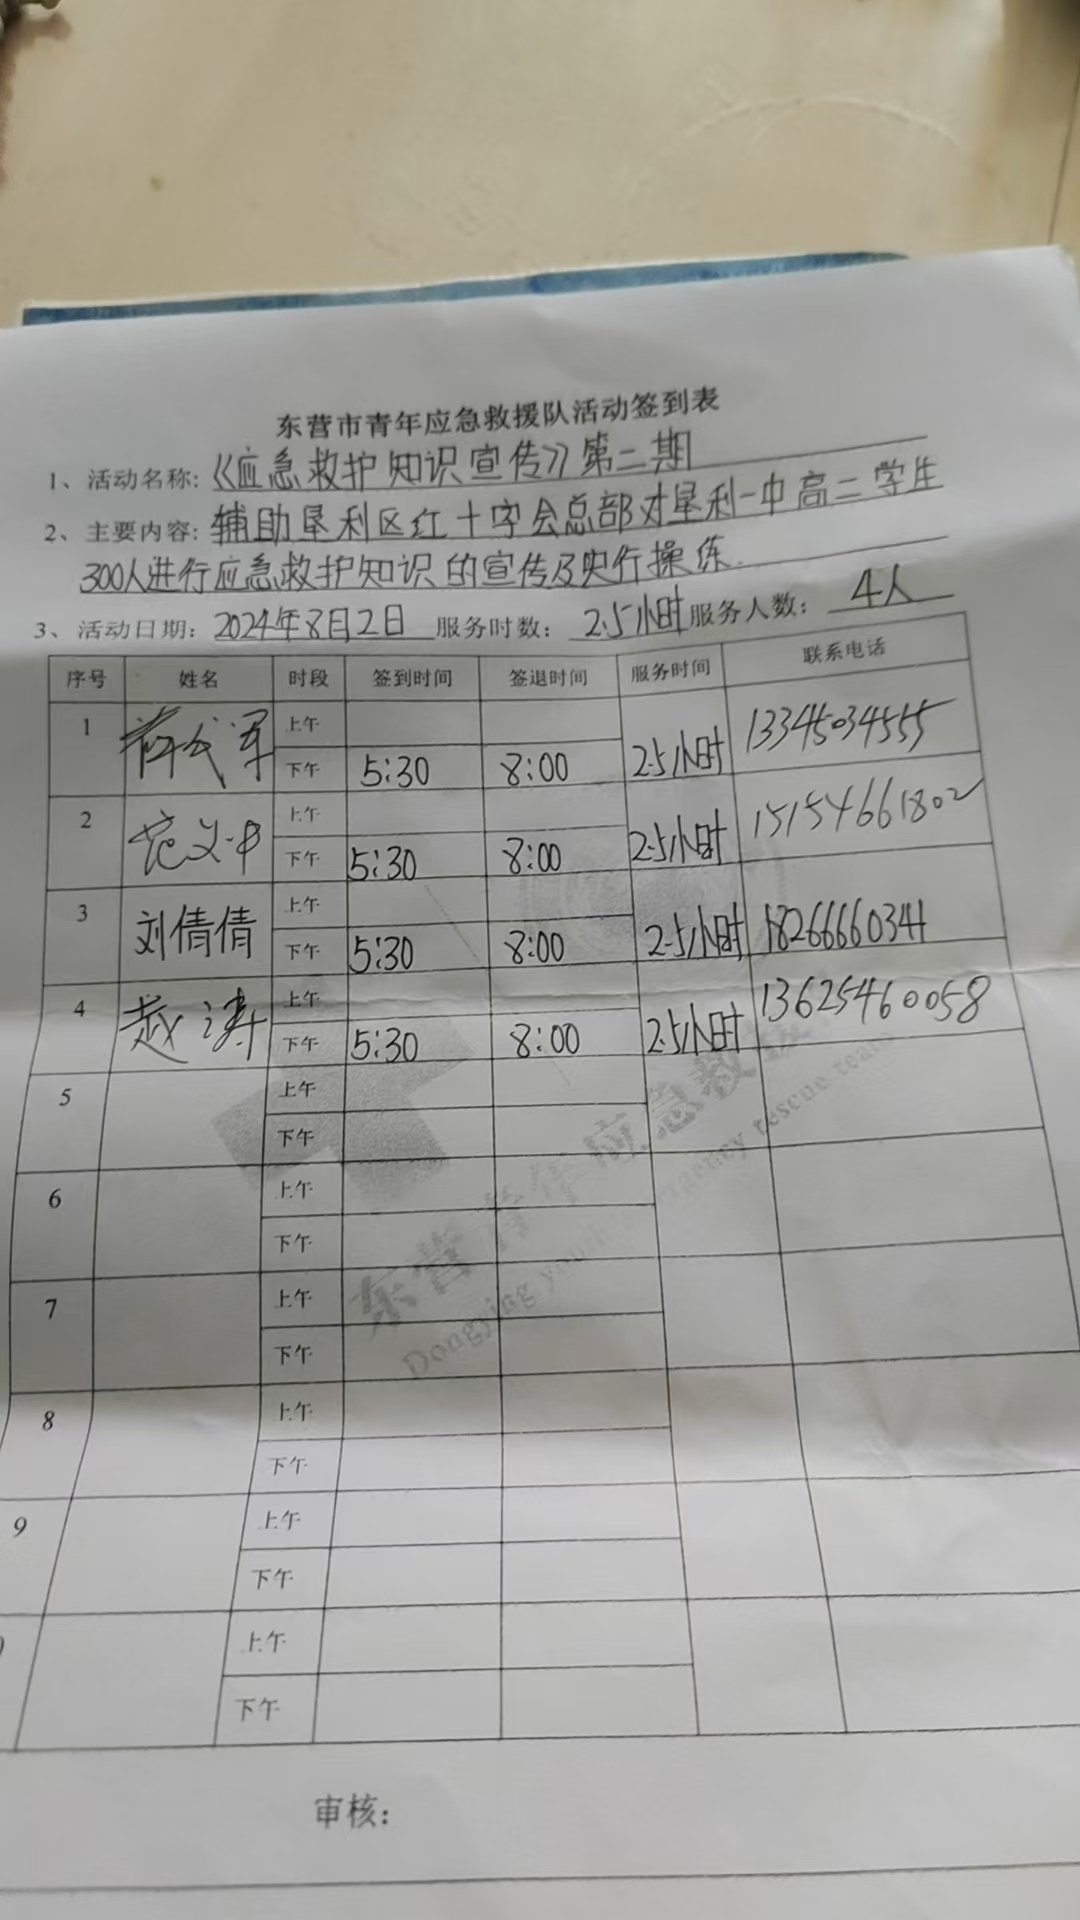 东营市青年应急救援队活动签到表
1、活动名称:《应急救护知识宣传》第二期
2、主要内容:辅助垦利区红十字会总部对垦利一中高二学生
300人进行应急救护知识的宣传及实行操练.
3、活动日期:2024年8月2日 服务时数:2.5小时 服务人数:4人
序号 姓名 时段 签到时间 签退时间 服务时间 联系电话
1 上午
下午 5:30 8:00 2.5小时 13345034555
2 上午
下午 5:30 8:00 2.5小时 15154661802
3 刘倩倩 上午
下午 5:30 8:00 2.5小时 18266660341
4 赵涛 上午
下午 5:30 8:00 2.5小时 13625460058
5 上午
下午
6 上午
下午
7 上午
下午
8 上午
下午
9 上午
下午
上午
下午
东营青年应急救援
Dongying youth emergency rescue team
审核: